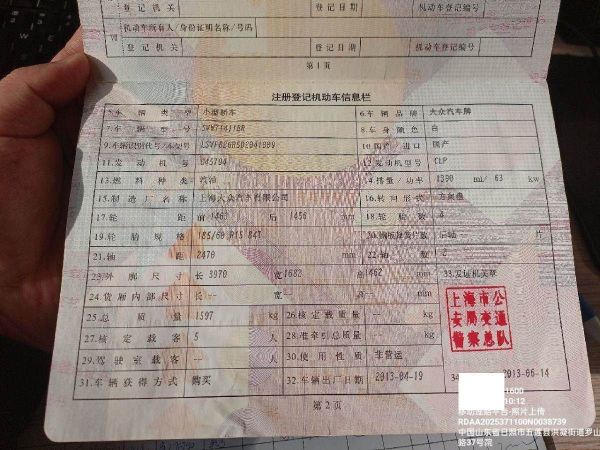 登记机关 登记日期 机动车登记编号
Ⅶ 机动车所有人/身份证明名称/号码
登记机关 登记日期 机动车登记编号
第1页
注册登记机动车信息栏
5.车辆类型 小型轿车 6.车辆品牌 大众汽车牌
7.车辆型号 SVW7141JBR 8.车身颜色 白
9.车辆识别代号/车架号 10.国产/进口 国产
11.发动机号 045794 12.发动机型号 CLP
13.燃料种类 汽油 14.排量/功率 1390 ml/ 63 kw
15.制造厂名称 上海大众汽车有限公司 16.转向形式 方向盘
17.轮距 前 1463 后 1456 mm 18.轮胎数 4
19.轮胎规格 185/60 R15 84T 20.钢板弹簧片数 后轴 片
21.轴距 2470 mm 22.轴数 2
23.外廓尺寸 长 3970 宽 1682 高 1462 mm 33.发证机关章
24.货厢内部尺寸 长 宽 mm
25.总质量 1597 kg 26.核定载质量 kg
27.核定载客 5 人 28.准牵引总质量 kg
29.驾驶室载客 人 30.使用性质 非营运
31.车辆获得方式 购买 32.车辆出厂日期 2013-04-19 34 2013-06-14
上海市公
安局交通
警察总队
第2页
1600
10:12
照片上传
RDAA2025371100N0038739
中国山东省日照市五莲县洪凝街道罗山
路37号院